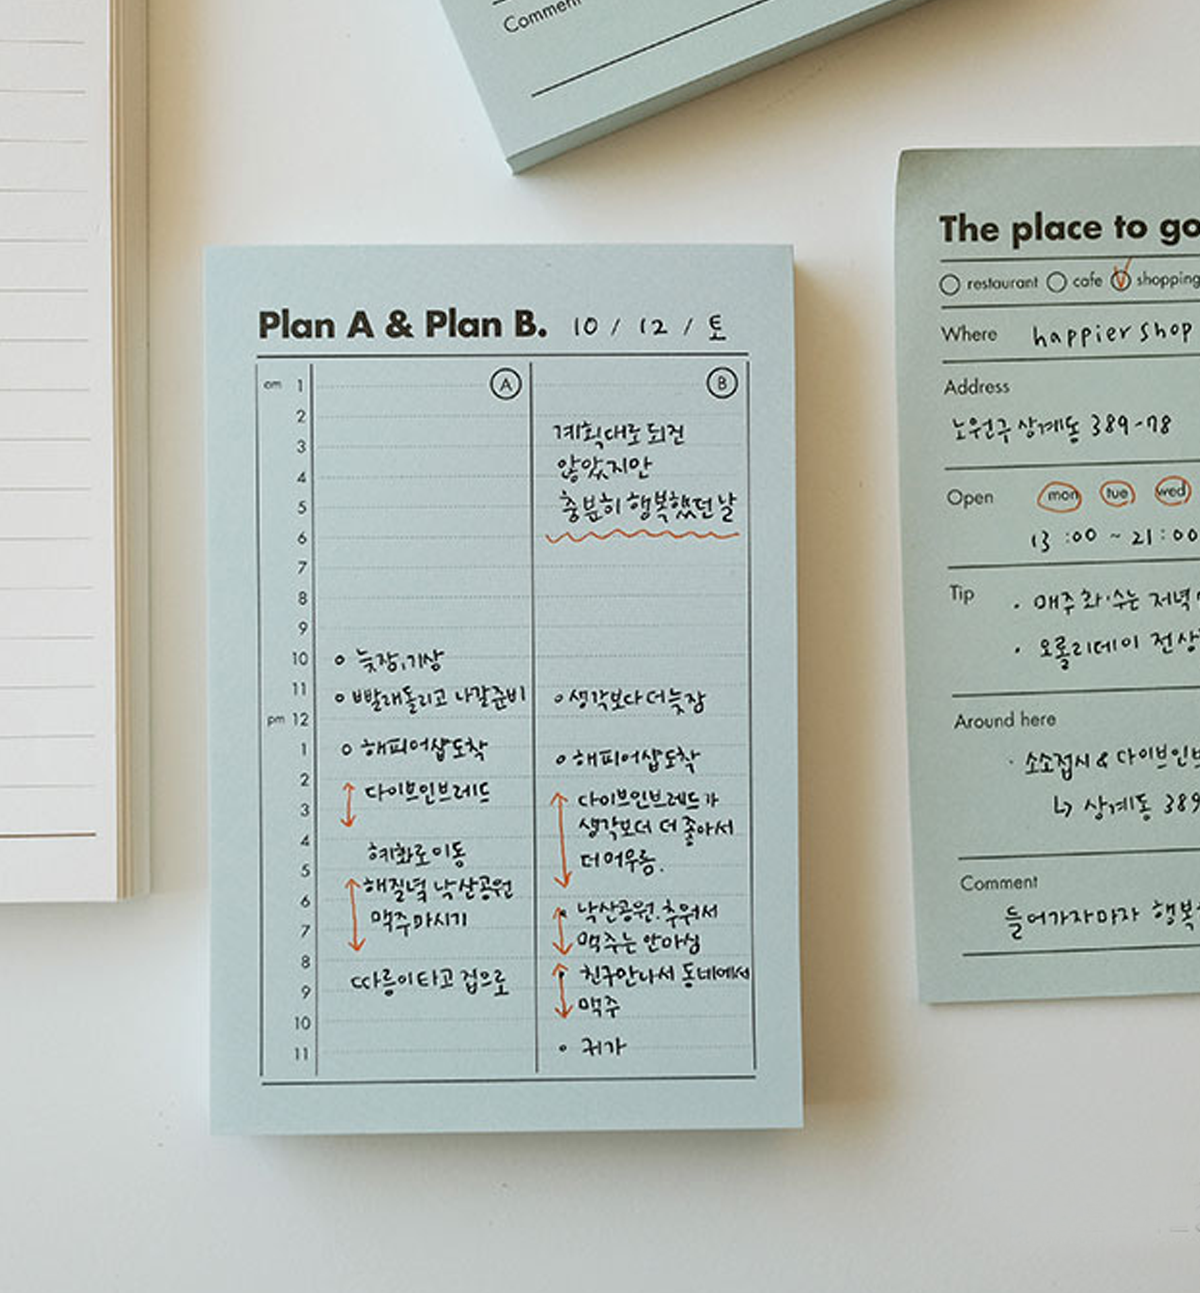 Comment
Plan A & Plan B. 10 / 12 / 토
A
B
am 1
2
3
4
5
6
7
8
9
10
11
pm 12
1
2
3
4
5
6
7
8
9
10
11
o 늦잠, 기상
o 빨래돌리고 나갈준비
o 해피어샵도착
다이브인브레드
혜화로이동
해질녘 낙산공원
맥주마시기
따릉이타고 집으로
계획대로 되진
않았지만
충분히 행복했던 날
o 생각보다 더 늦잠
o 해피어샵도착
다이브인브레드가
생각보더 더 좋아서
더머무름.
낙산공원. 추워서
맥주는 안마심
친구만나서 동네에서
맥주
• 귀가
The place to go
restaurant cafe shopping
Where happier shop
Address
노원구 상계동 389-78
Open mon tue wed
13:00 ~ 21:00
Tip · 매주 화·수는 저녁
· 오롤리데이 전상
Around here
· 소소접시 & 다이브인브
↳ 상계동 389
Comment
들어가자마자 행복